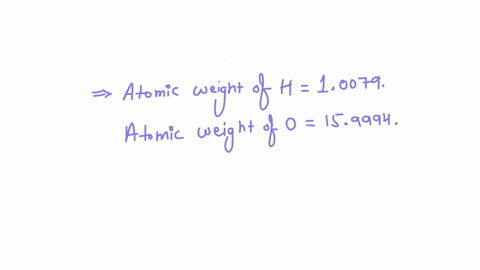 ⇒ Atomic weight of H = 1.0079.
Atomic weight of O = 15.9994.